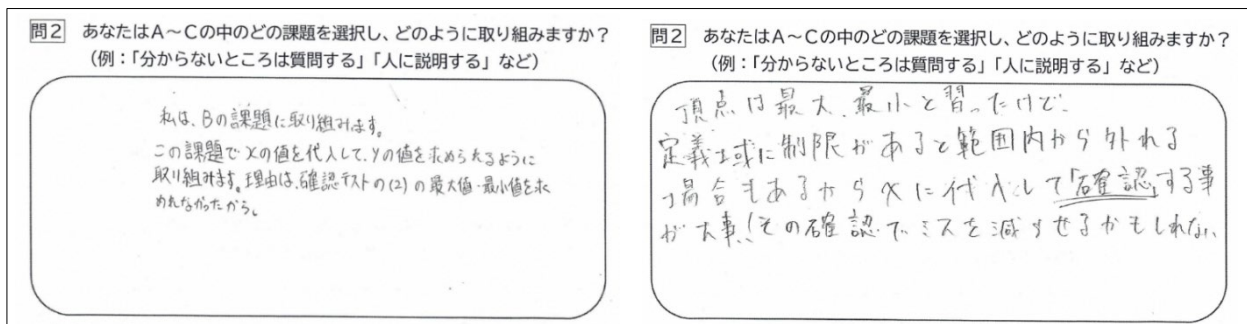 問2 あなたはA~Cの中のどの課題を選択し、どのように取り組みますか?
(例:「分からないところは質問する」「人に説明する」など)
私は、Bの課題に取り組みます。
この課題でxの値を代入して、yの値を求められるように
取り組みます。理由は、確認テストの(2)の最大値・最小値を求
めれなかったから。
問2 あなたはA~Cの中のどの課題を選択し、どのように取り組みますか?
(例:「分からないところは質問する」「人に説明する」など)
頂点は最大、最小と習ったけど、
定義域に制限があると範囲内から外れる
場合もあるからxに代入して「確認」する事
が大事!その確認でミスを減らせるかもしれない